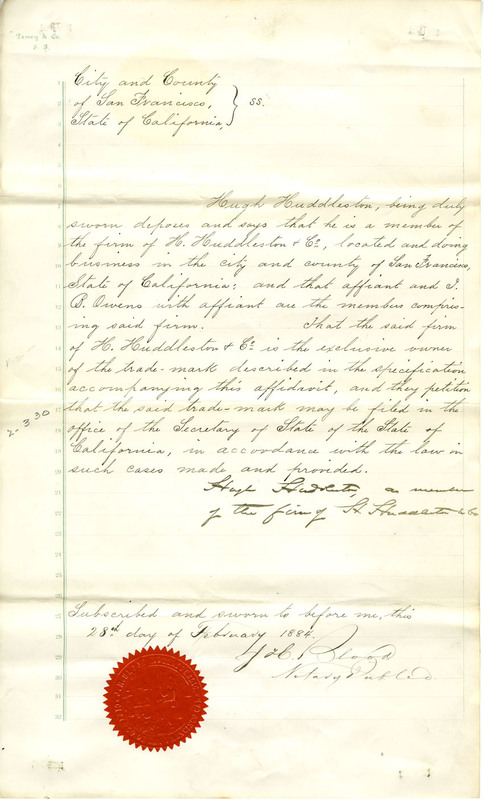 City and County
of San Francisco, } ss.
State of California,
Hugh Huddleston, being duly
sworn deposes and says that he is a member of
the firm of H. Huddleston & Co, located and doing
business in the city and county of San Francisco,
State of California; and that affiant and J.
B. Owens with affiant are the members compris-
ing said firm. That the said firm
of H. Huddleston & Co is the exclusive owner
of the trade-mark described in the specification
accompanying this affidavit, and they petition
that the said trade-mark may be filed in the
2-3-30
office of the Secretary of State of the State of
California, in accordance with the law in
such cases made and provided.
Hugh Huddleston, a member
of the firm of H. Huddleston & Co
Subscribed and sworn to before me, this
28th day of February 1884.
Blood
Notary Public